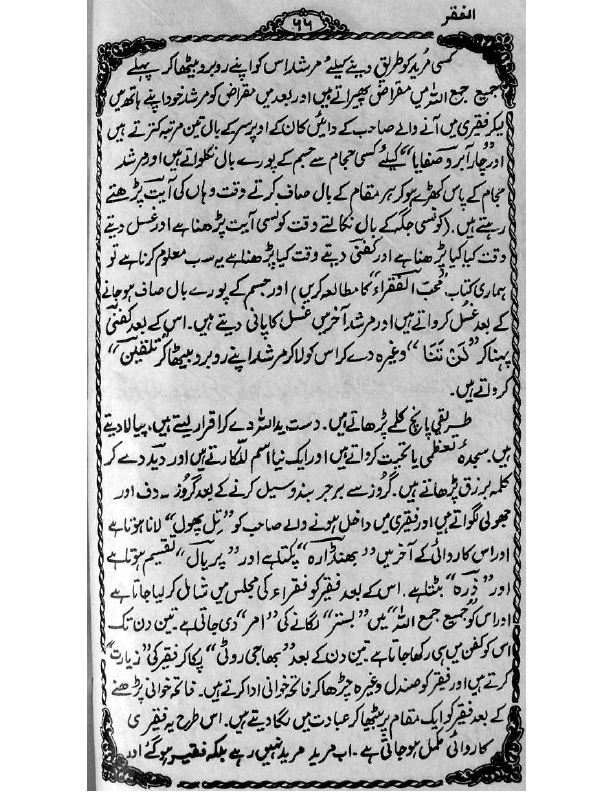 الفقر
۶۶
کسی مُرید کو طریق دینے کیلئے مرشد اس کو اپنے روبرو بیٹھا کر پہلے
جمیع جمع اللہ میں مقراض پھراتے ہیں اور بعد میں مقراض کو مرشد خود اپنے ہاتھ میں
لیکر فقری میں آنے والے صاحب کے دائیں کان کے اوپر سر کے بال تین مرتبہ کترتے ہیں
اور "چار آبرو صفایا" کیلئے کسی حجام سے جسم کے پورے بال نکلواتے ہیں اور مرشد
حجام کے پاس کھڑے ہو کر ہر مقام کے بال صاف کرتے وقت وہاں کی آیت پڑھتے
رہتے ہیں۔ (کونسی جگہ کے بال نکالتے وقت کونسی آیت پڑھنا ہے اور غسل دیتے
وقت کیا کیا پڑھنا ہے اور کفنی دیتے وقت کیا پڑھنا ہے یہ سب معلوم کرنا ہے تو
ہماری کتاب "محبّ الفقراء" کا مطالعہ کریں) اور جسم کے پورے بال صاف ہوجانے
کے بعد غسل کرواتے ہیں اور مرشد آخر میں غسل کا پانی دیتے ہیں۔ اس کے بعد کفنی
پہنا کر " وغیرہ دے کر اس کو لا کر مرشد اپنے روبرو بیٹھا کر "تلقین"
کرواتے ہیں۔
طریقی پانچ کلمے پڑھاتے ہیں۔ دست ید اللہ دے کر اقرار لیتے ہیں، پیالا دیتے
ہیں۔ سجدۂ تعظمی یا تحیت کرواتے ہیں اور ایک نیا اسم للکارتے ہیں اور دید دے کر
کلمہ برزق پڑھاتے ہیں۔ گروز سے ہر جر بند وسیل کرنے کے بعد گروز سے دف اور
جھولی لگواتے ہیں اور فقیری میں داخل ہونے والے صاحب کو "تِل پھول" لانا ہوتا ہے
اور اس کاروائی کے آخر میں "بھنڈارہ" پکتا ہے اور "پریال" تقسیم ہوتا ہے
اور "ذرّہ" بٹتا ہے۔ اس کے بعد فقیر کو فقراء کی مجلس میں شامل کر لیا جاتا ہے
اور اس کو جمیع جمع اللہ میں "بستر" لگانے کی "امر" دی جاتی ہے۔ تین دن تک
اس کو کفن میں ہی رکھا جاتا ہے۔ تین دن کے بعد "بھاجی روٹی" پکا کر فقیر کی "زیارت"
کرتے ہیں اور فقیر کو صندل وغیرہ چڑھا کر فاتحہ خوانی ادا کرتے ہیں۔ فاتحہ خوانی پڑھنے
کے بعد فقیر کو ایک مقام پر بیٹھا کر عبادت میں لگا دیتے ہیں۔ اس طرح یہ فقیری
کاروائی مکمل ہوجاتی ہے۔ اب مرید مرید نہیں رہے بلکہ فقیر ہوگئے اور